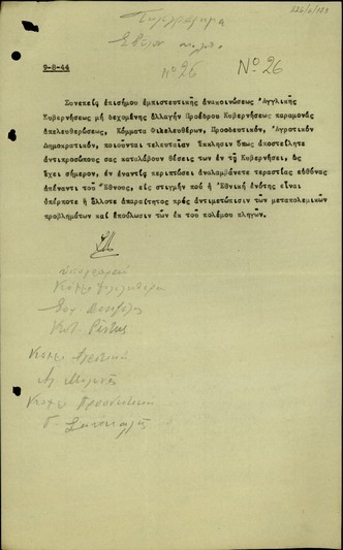 Τηλεγράφημα
No 26 No 26
9-8-44
Συνεπείᾳ ἐπισήμου ἐμπιστευτικῆς ἀνακοινώσεως Ἀγγλικῆς
Κυβερνήσεως μή δεχομένης ἀλλαγήν Προέδρου Κυβερνήσεως παραμονάς
ἀπελευθερώσεως, Κόμματα Φιλελευθέρων, Προοδευτικόν, Ἀγροτικόν
Δημοκρατικόν, ποιοῦνται τελευταίαν ἔκκλησιν ὅπως ἀποστείλητε
ἀντιπροσώπους σας καταλάβουν θέσεις των ἐν τῇ Κυβερνήσει, ὡς
ἔχει σήμερον, ἐν ἐναντίᾳ περιπτώσει ἀναλαμβάνετε τεραστίας εὐθύνας
ἀπέναντι τοῦ Ἔθνους, εἰς στιγμήν πού ἡ Ἐθνική ἑνότης εἶναι
ὑπέρποτε ἤ ἄλλοτε ἀπαραίτητος πρός ἀντιμετώπισιν τῶν μεταπολεμικῶν
προβλημάτων καί ἐπούλωσιν τῶν ἐκ τοῦ πολέμου πληγῶν.
Σοφ. Βενιζέλος
Κωτ. Ρέντης
Αλ. Μυλωνάς
Κομμ. Προοδευτικόν